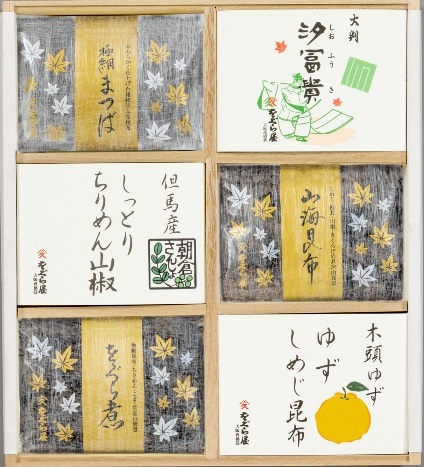 極細
まつば
大判
汐冨貴
しおふうき
をぐら屋
但馬産
しっとり
ちりめん山椒
朝倉
さんしょ
をぐら屋
山海昆布
をぐら煮
木頭ゆず
ゆず
しめじ昆布
をぐら屋